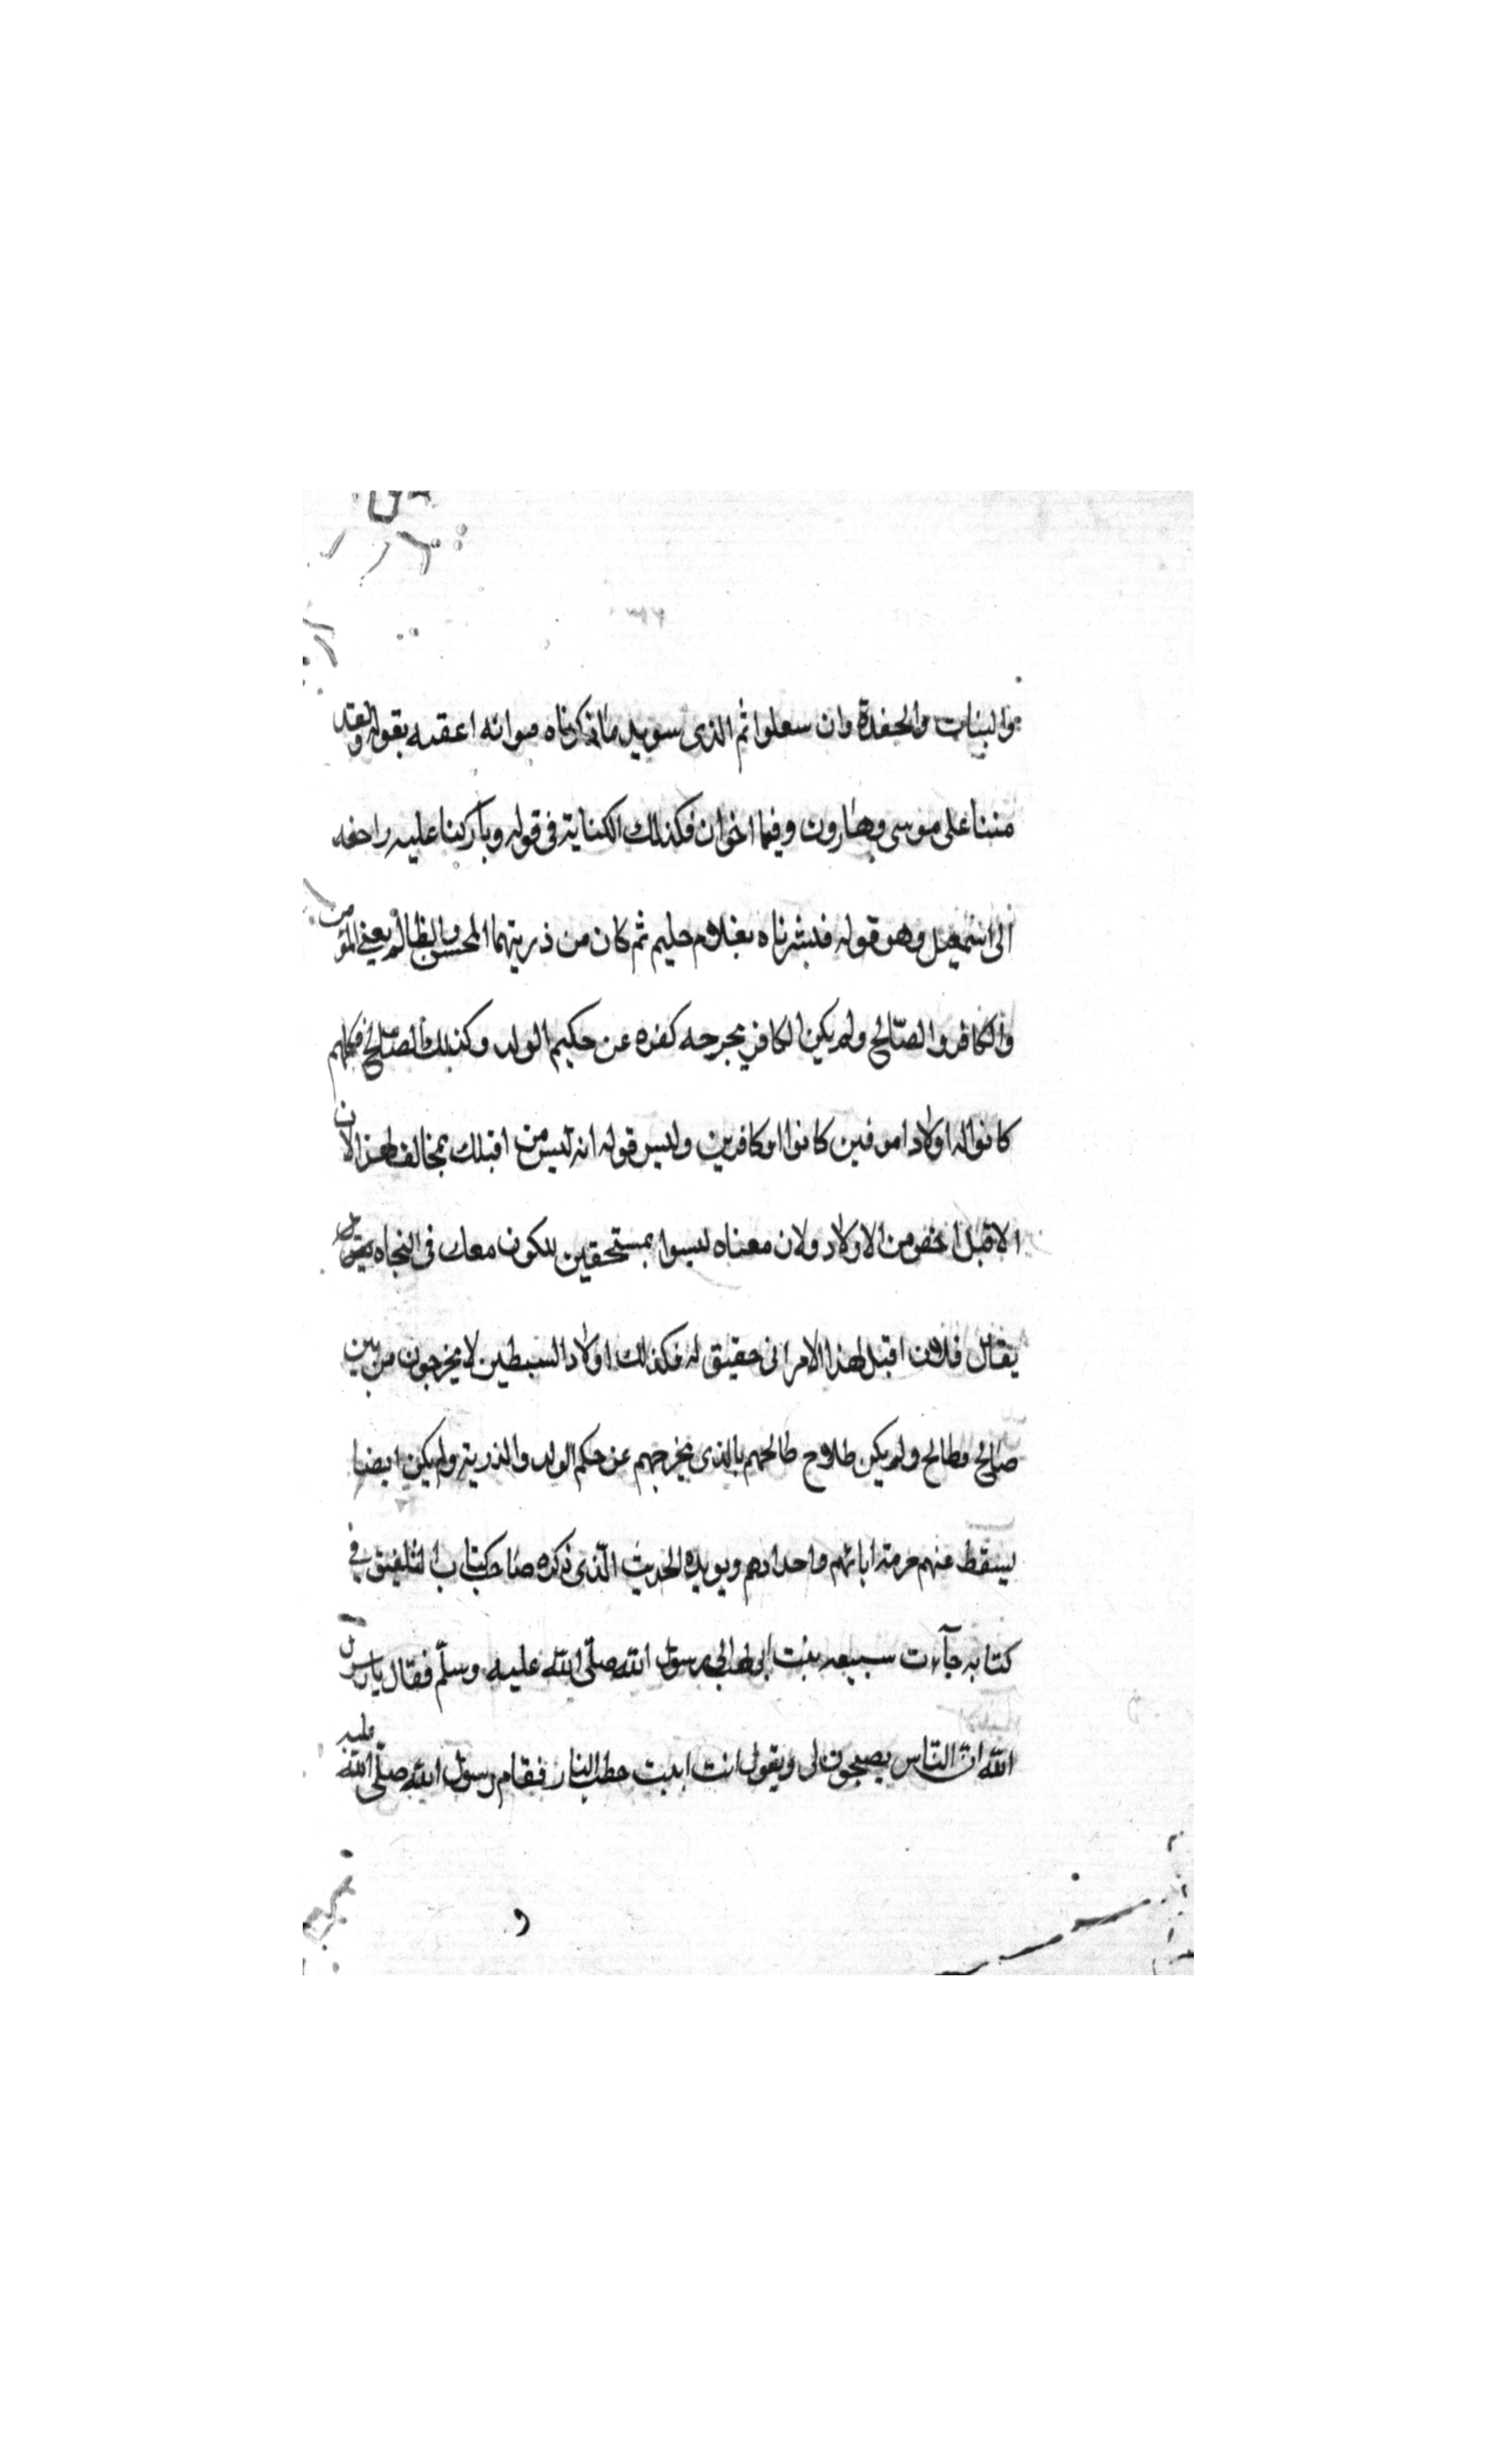 والبنات والحفدة وان سعلوا ثم الذى سويد ماذكرناه هوانه اعقبه بقوله ولقد
مننا على موسى وهارون وفيما اخوان فكذلك الكناية فى قوله وباركنا عليه راجعه
الى اسمعيل وهو قوله فبشرناه بغلام حليم ثم كان من ذريتهما المحسن والظالم يعنى المؤمن
والكافر والصالح ولم يكن الكافر يخرجه كفره عن حكيم الولد وكذلك الصالح فكلهم
كانوا له اولادا مومنين كانوا او كافرين وليس قوله انه ليس من اهلك بمخالف لهذا لان
الاهل اخص من الاولاد ولان معناه ليسوا بمستحقين للكون معك فى النجاه
يقال فلان اهل لهذا الامر اى حقيق له فكذلك اولاد السبطين لا يخرجون من بين
صالح وطالح ولم يكن طلاح طالحهم بالذى يخرجهم عن حكم الولد والذرية ولم يكن ايضا
يسقط عنهم حرمة ابائهم واجدادهم ويويده الحديث الذى ذكره صاحب كتاب التلفيق فى
كتابه جآءت سبيعه بنت ابى لهب الى رسول الله صلى الله عليه وسلم فقال يا رسول
الله ان الناس يصيحون لى ويقول انت ابنت حطب النار فقام رسول الله صلى الله عليه